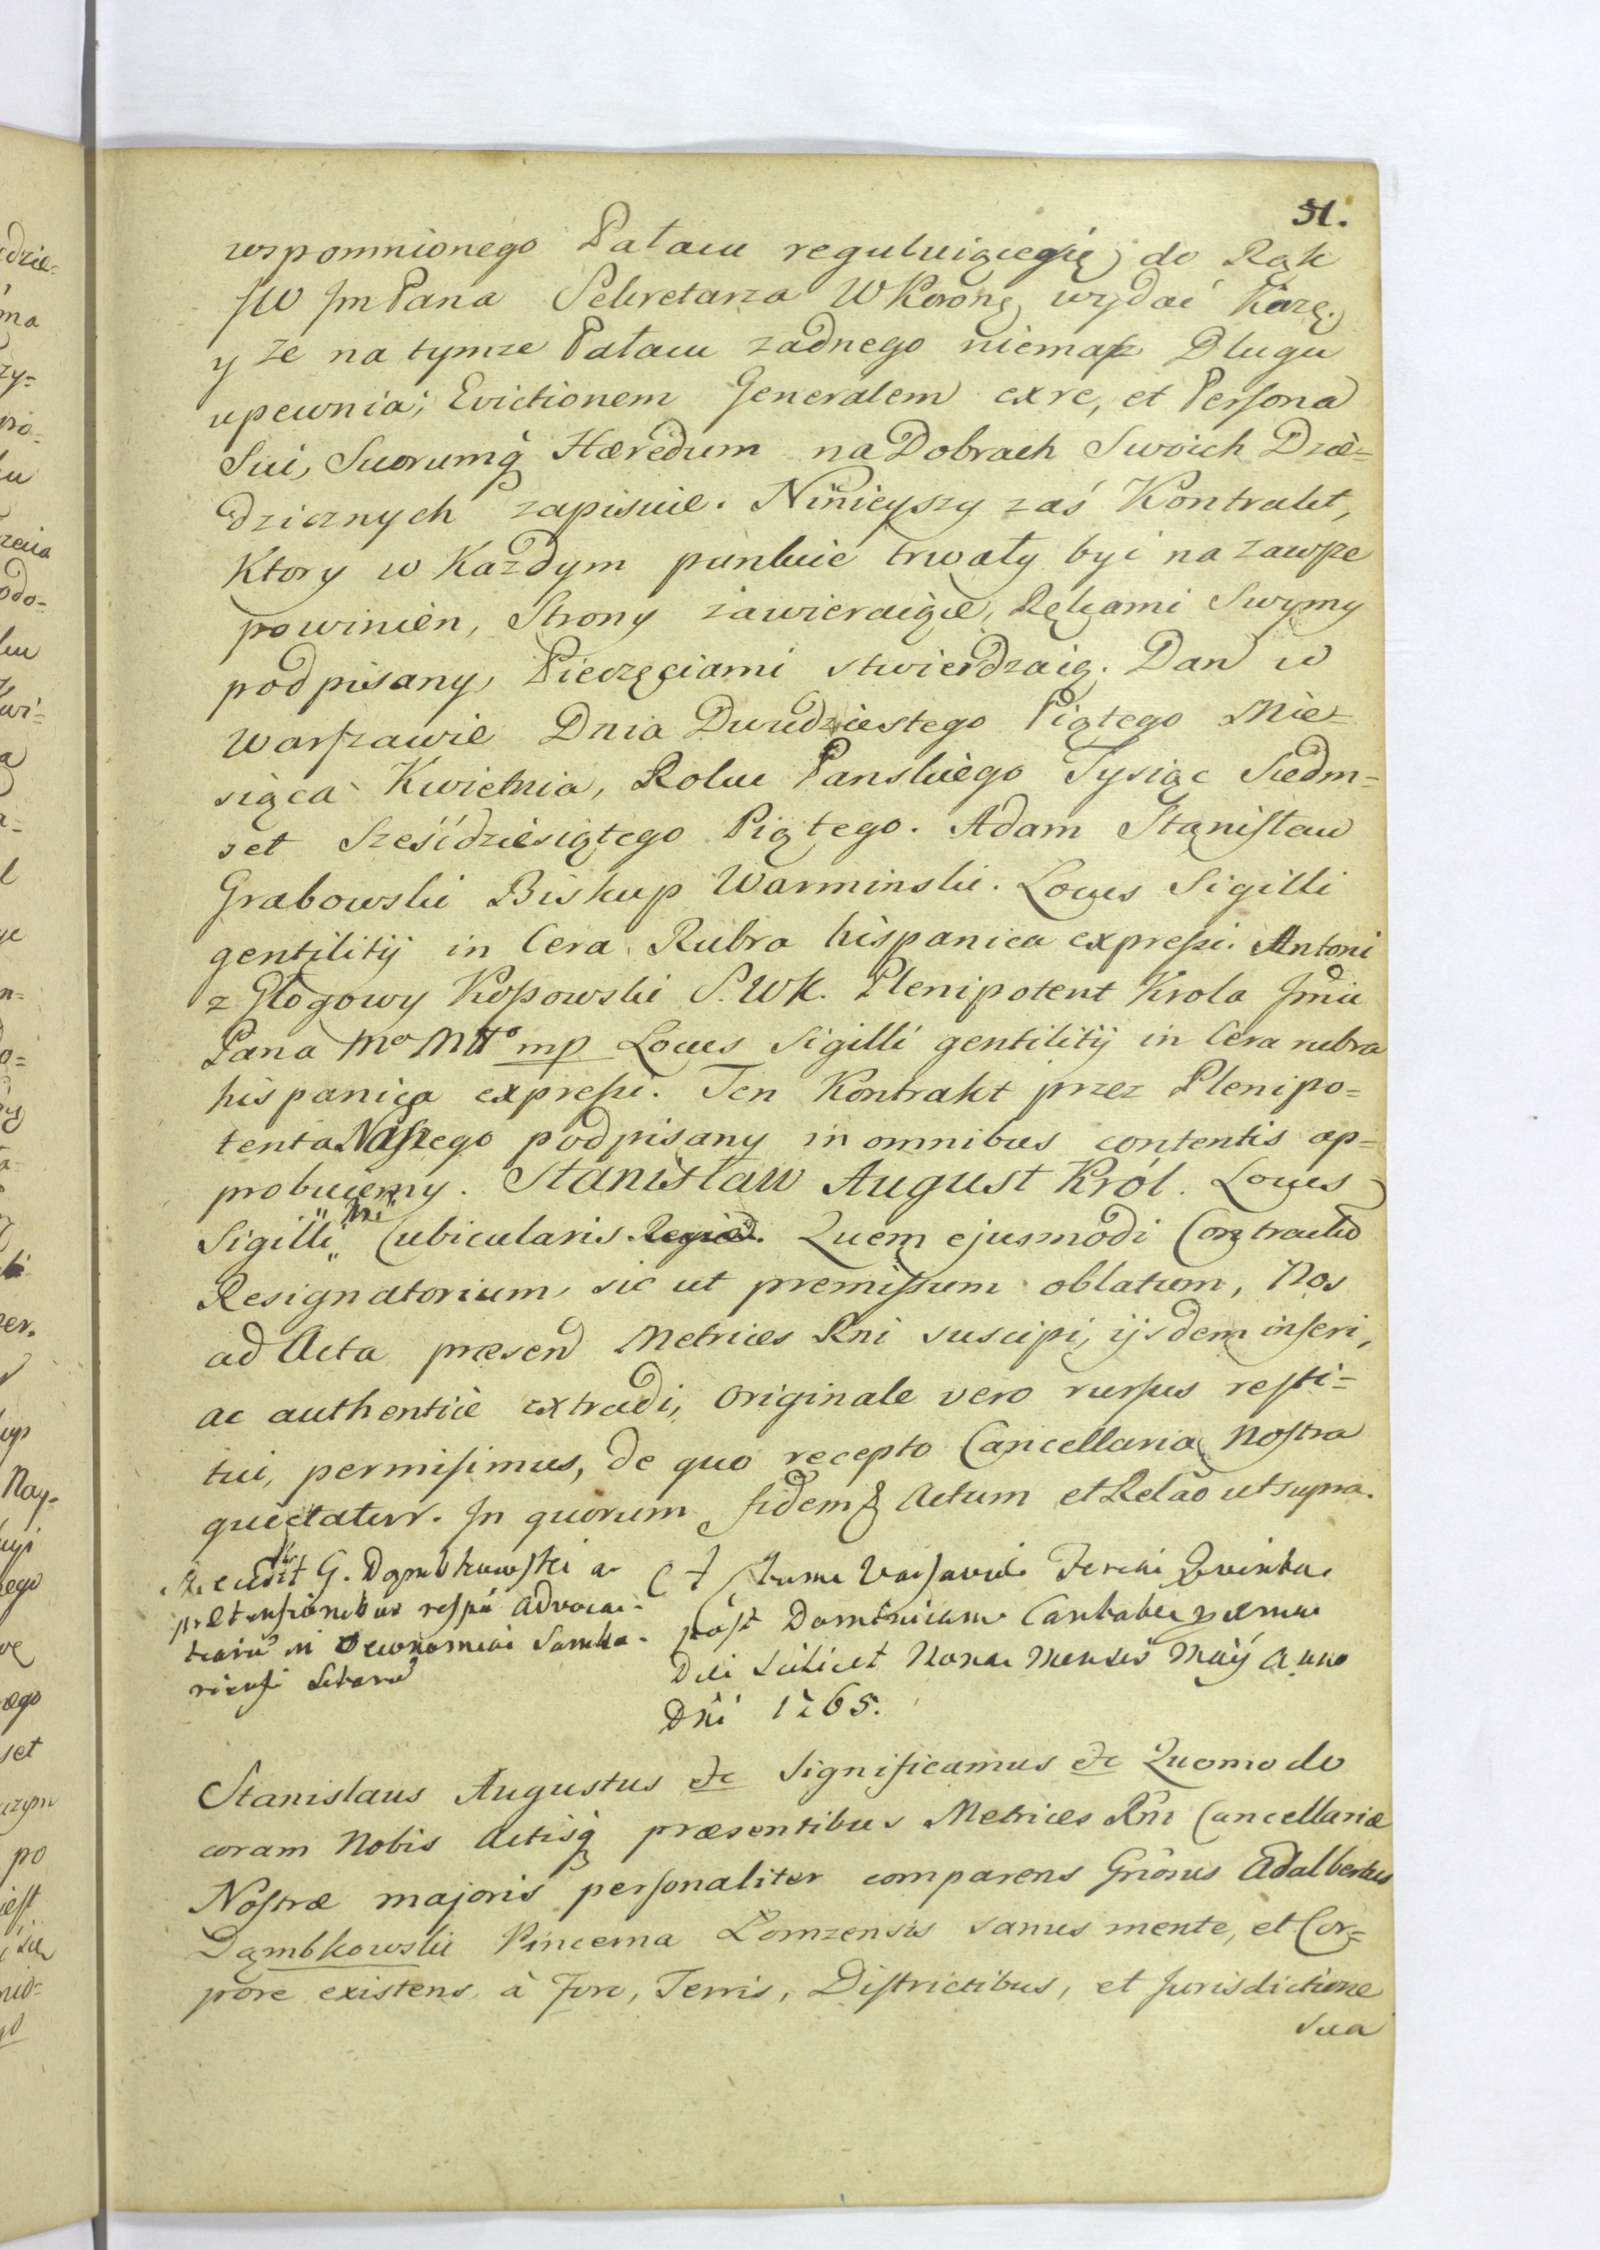 51.
wspomnionego Pałacu reguluiącegię do Rąk
JW Jm Pana Sekretarza W Koronę wydać Każę.
y że na tymże Pałacu zadnego niemasz Długu
upewnia; Evictionem Generalem exre, et Persona
Sui, Suorumq̃ Hæredum na Dobrach Swoich Dzie=
dzicznych zapisuie. Ninieyszy zaś Kontrakt,
Ktory w Każdym punkcie trwały być na zawsze
powinien, Strony zawieraiące, Rękami Swymy
podpisany, Pieczęciami stwierdzaią. Dan w
Warszawie Dnia Dwudziestego Piątego Mie=
siąca Kwietnia, Roku Panskiego Tysiąc Siedm=
set Sześćdziesiątego Piątego. Adam Stanisław
Grabowski Biskup Warminski. Locus Sigilli
gentilitij in Cera Rubra hispanica expressi. Antoni
z Głogowy Kossowski S.WK. Plenipotent Krola Jmći
Pana Mo Młło mp Locus Sigilli gentilitij in Cera rubra
hispanica expressi. Ten Kontrakt przez Plenipo=
tenta Naszego podpisany in omnibus contentis ap=
probuiemy. Stanisław August Król. Locus
Sigilli Cubicularis Quem ejusmodi Contractũ
Resignatorium, sic ut premissum oblatum, Nos
ad Acta præsend Metrices Rni suscipi, ijsdem inseri,
ac authentice extradi, Originale vero rursus resti=
tui, permisimus, de quo recepto Cancellaria Nostra
quietatur. In quorum fidem & Actum et Relão ut supra.
G. Dąmbkowski a
prætensionibus respũ Advoca=
tiarũ in Oeconomia Sambo=
riensi Sitarũ
Actum Varsaviæ Feria Quinta
post Dominicam Cantabu
Die scilicet Nona Mensis Maij Anno
Dni 1765.
Stanislaus Augustus &c Significamus &c Quomodo
coram Nobis Actisq̃ præsentibus Metrices Rni Cancellariæ
Nostræ majoris personaliter comparens Grõsus Adalbertus
Dąmbkowski Pincerna Łomzensis sanus mente, et Cor=
pore existens à Foro, Terris, Districtibus, et Jurisdictione
sua